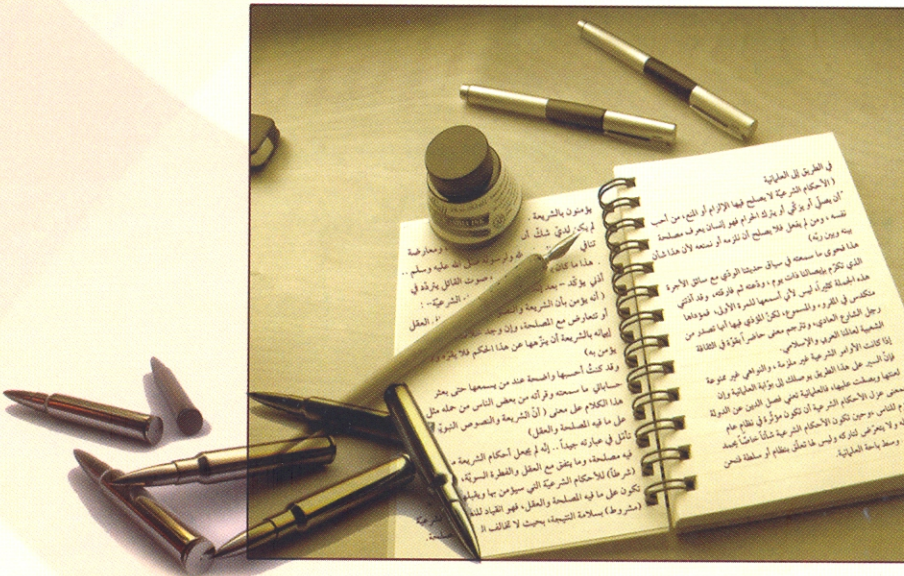 في الطريق إلى العلمانية
( الأحكام الشرعيّة لا يصلح فيها الإلزام أو المنع، من أحب
أن يصلّي أو يزكّي أو يترك الحرام فهو إنسان يعرف مصلحة
نفسه، ومن لم يفعل فلا يصلح أن نلزمه أو نمنعه لأن هذا شأن
بينه وبين ربّه)
هذا فحوى ما سمعته في سياق حديثنا الودّي مع سائق الأجرة
الذي تكرّم بإيصالنا ذات يوم، ودّعته ثم فارقته، وقد آذتني
هذه الجملة كثيراً، ليس لأني أسمعها للمرة الأولى، فمؤداها
متكدس في المقروء والمسموع، لكنّ المؤذي فيها أنها تصدر من
رجل الشارع العادي، وتترجم معنى حاضراً بقوّة في الثقافة
الشعبية لعالمنا العربي والإسلامي.
إذا كانت الأوامر الشرعية غير ملزمة، والنواهي غير ممنوعة
فإنّ السير على هذا الطريق يوصلك إلى بوّابة العلمانية وإن
لعنتها وبصقت عليها، فالعلمانية تعني فصل الدين عن الدولة
عزل الأحكام الشرعية أن تكون مؤثّرة في نظام عام
للناس، وحين تكون الأحكام الشرعية شأناً خاصّاً
ولا يتعرّض لتاركه وليس لها تعلّق بنظام أو سلطة فنحن
وسط باحة العلمانية.
يؤمنون بالشريعة.
لم يكن لديّ شكّ أن ومعارضة
تنافي ورسوله صلى الله عليه وسلم ..
هذا ما كان صوت القائل يتردّد في
أذني يؤكّد - بعد الشرعيّة - :
( أنه يؤمن بأن الشريعة العقل
أو تتعارض مع المصلحة، وإن وجد
إيمانه بالشريعة أن ينزّهها عن هذا الحكم فلا يقرّه
يؤمن به)
وقد كنتُ أحسبها واضحة عند من يسمعها حتى بعثر
حساباتي ما سمعته وقرأته من بعض الناس من حمله مثل
هذا الكلام على معنى ( أنّ الشريعة والنصوص النبويّة
على ما فيه المصلحة والعقل)
تأمّل في عبارته جيداً .. إنه لم يجعل أحكام الشريعة
فيه مصلحة، وما يتفق مع العقل والفطرة السويّة،
(شرطاً) للأحكام الشرعيّة التي سيؤمن بها
تكون على ما فيه المصلحة والعقل، فهو انقياد
(مشروط) بسلامة النتيجة، بحيث لا تخالف